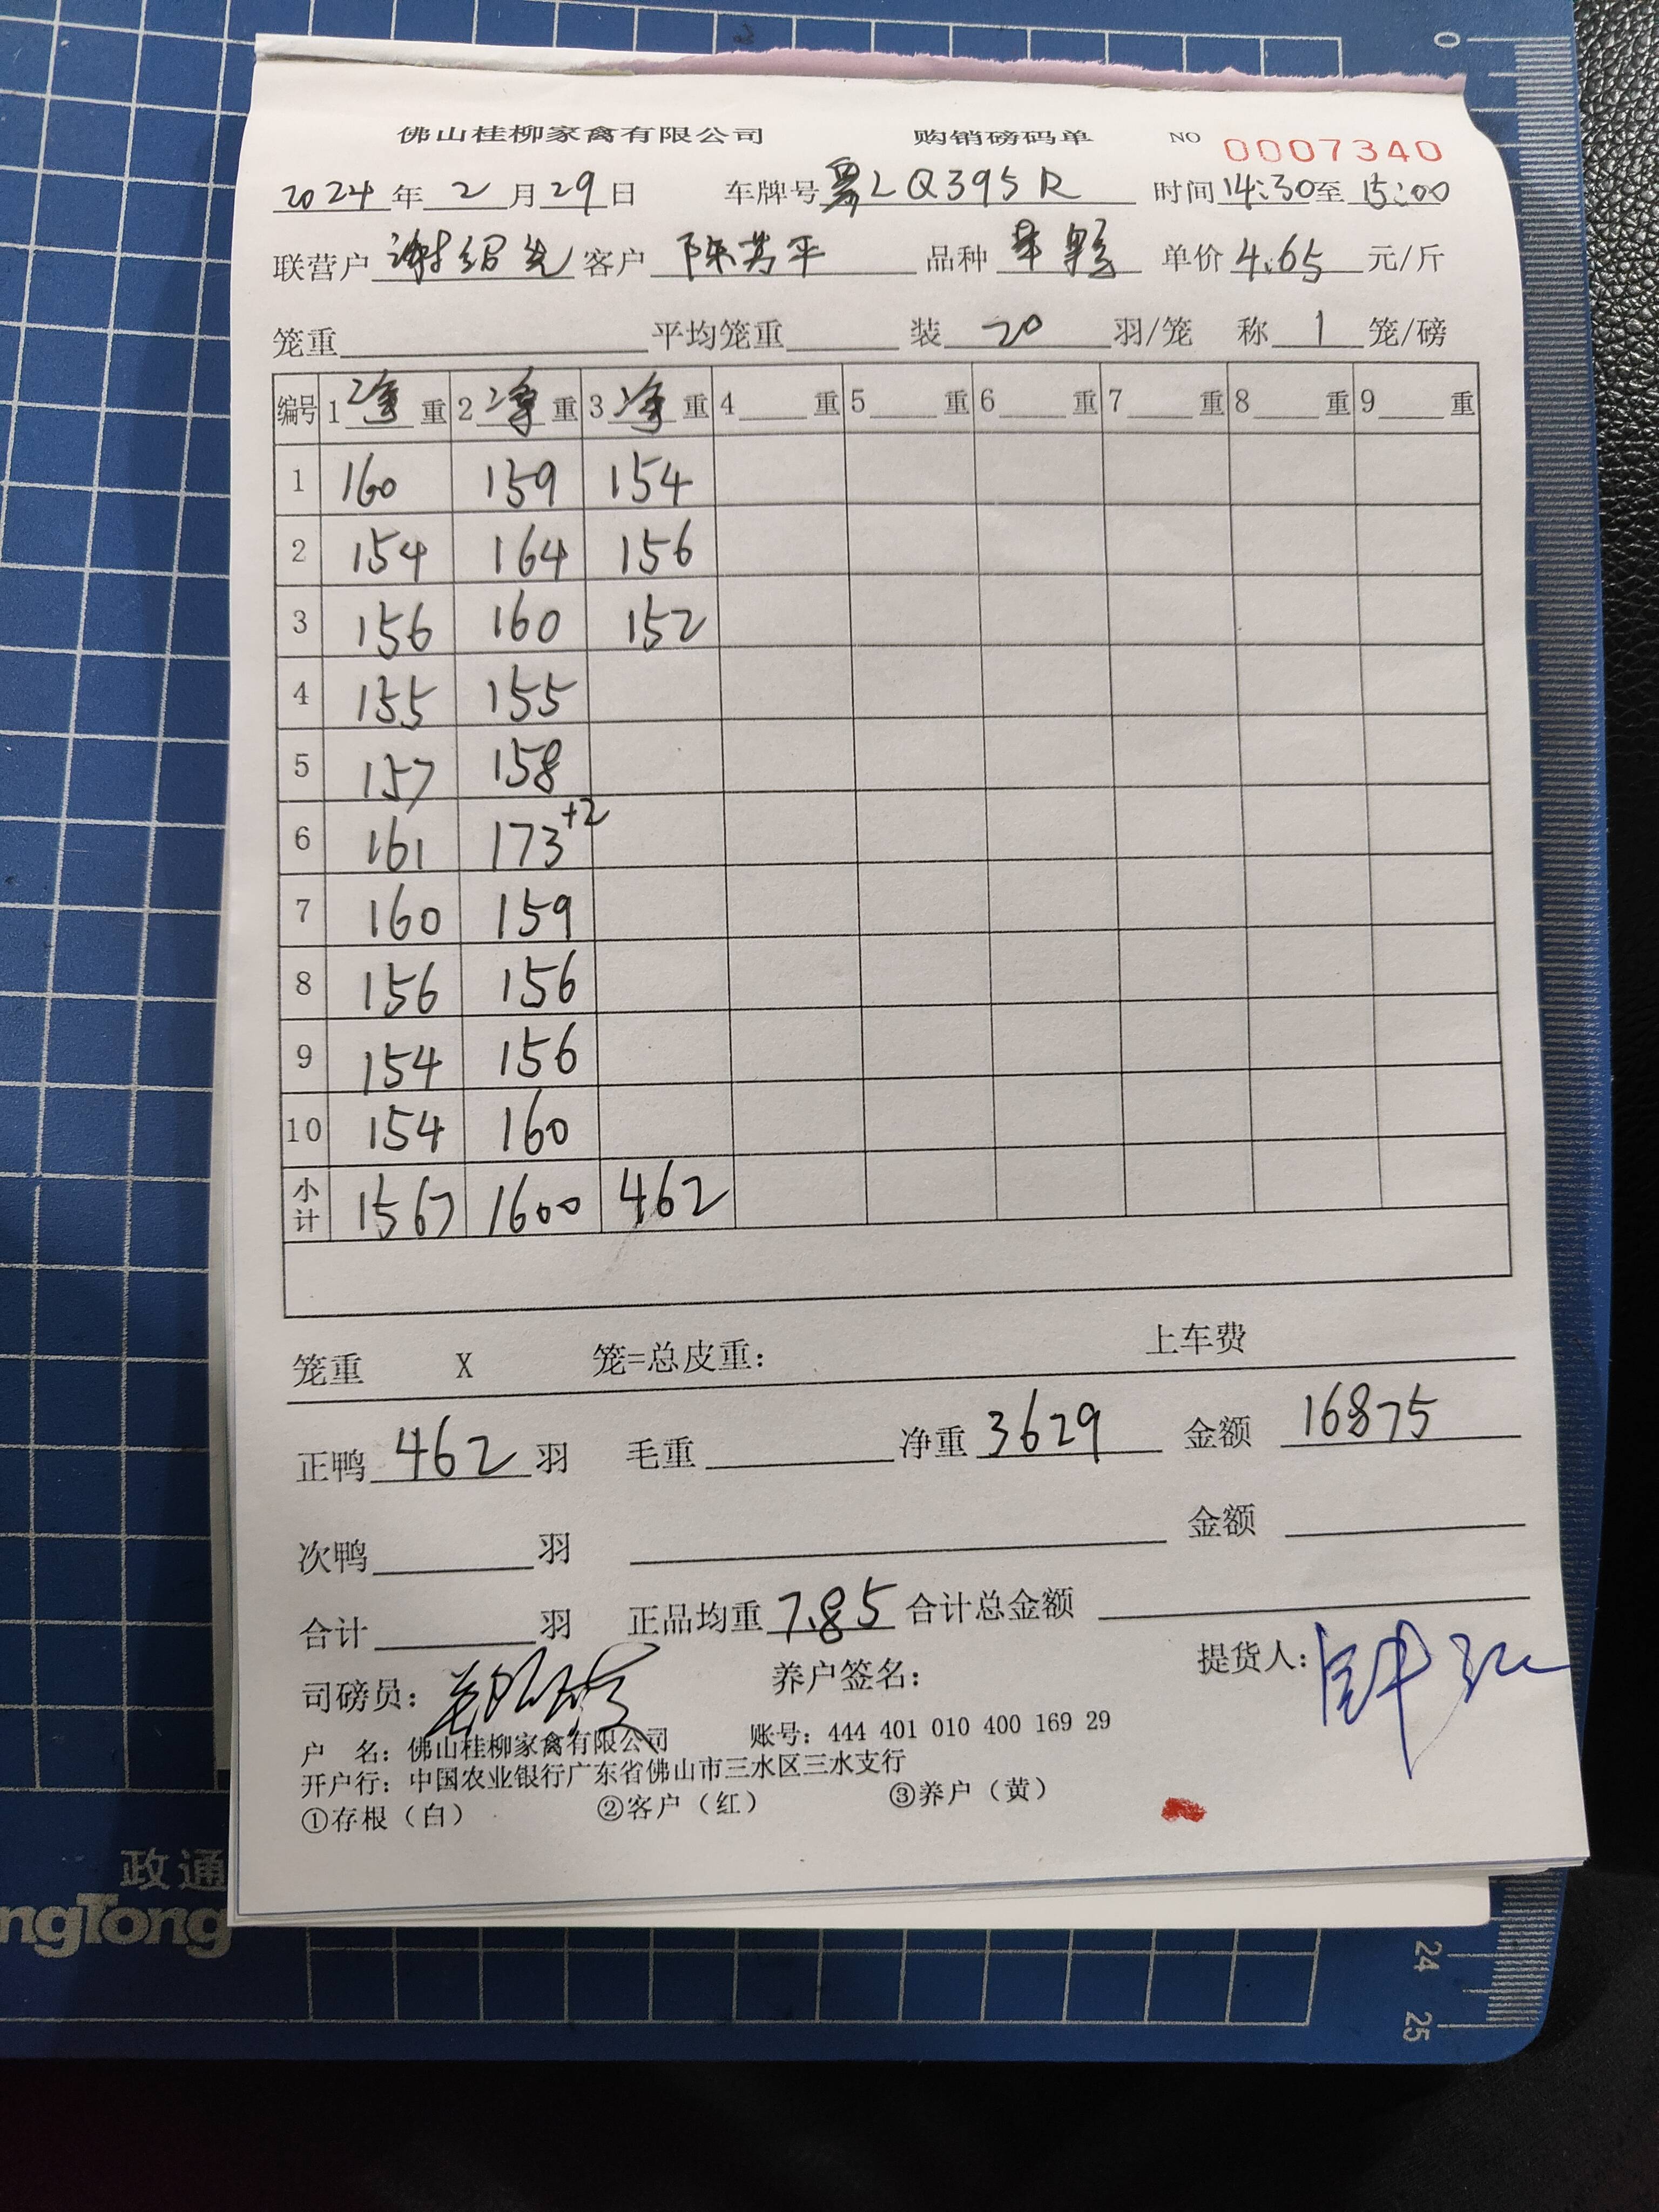 0
佛山桂柳家禽有限公司 购销磅码单 NO 0007340
2024 年 2 月 29 日 车牌号 粤LQ395R 时间 14:30 至 15:00
联营户 谢绍先 客户 陈芳平 品种 单价 4.65 元/斤
笼重 平均笼重 装 20 羽/笼 称 1 笼/磅
编号 1 净 重 2 净 重 3 净 重 4 重 5 重 6 重 7 重 8 重 9 重
1 160 159 154
2 154 164 156
3 156 160 152
4 155 155
5 157 158
6 161 173+2
7 160 159
8 156 156
9 154 156
10 154 160
小计 1567 1600 462
笼重 X 笼=总皮重: 上车费
正鸭 462 羽 毛重 净重 3629 金额 16875
次鸭 羽 金额
合计 羽 正品均重 7.85 合计总金额
司磅员: 养户签名: 提货人:
户 名: 佛山桂柳家禽有限公司 账号: 444 401 010 400 169 29
开户行: 中国农业银行广东省佛山市三水区三水支行
①存根（白） ②客户（红） ③养户（黄）
政通
ngTong
24
25